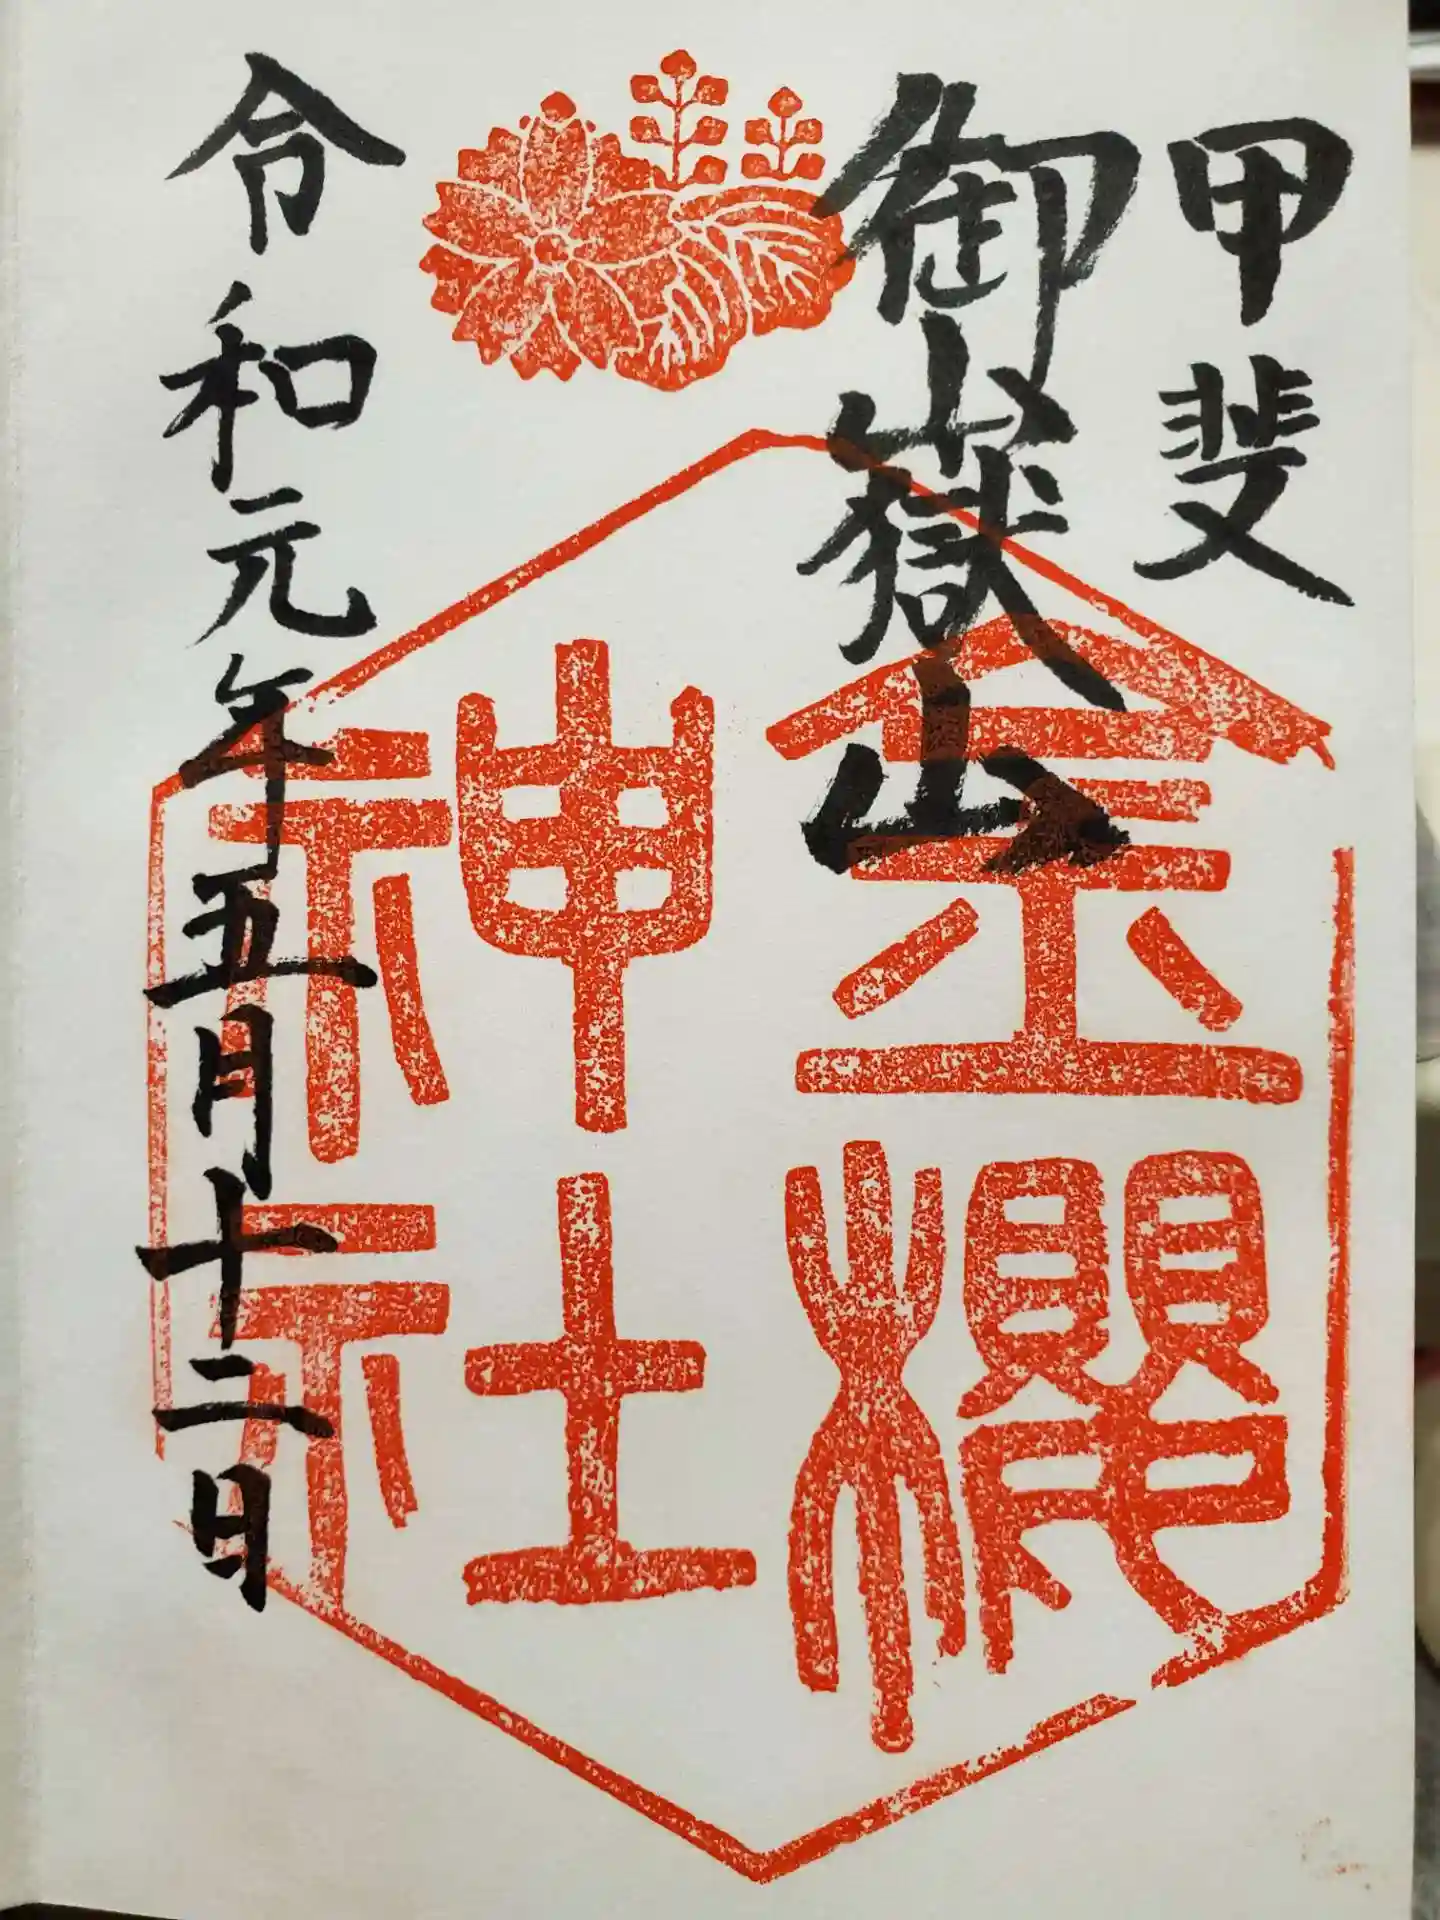 甲斐
御嶽山
金櫻
神社
令和元年五月十二日